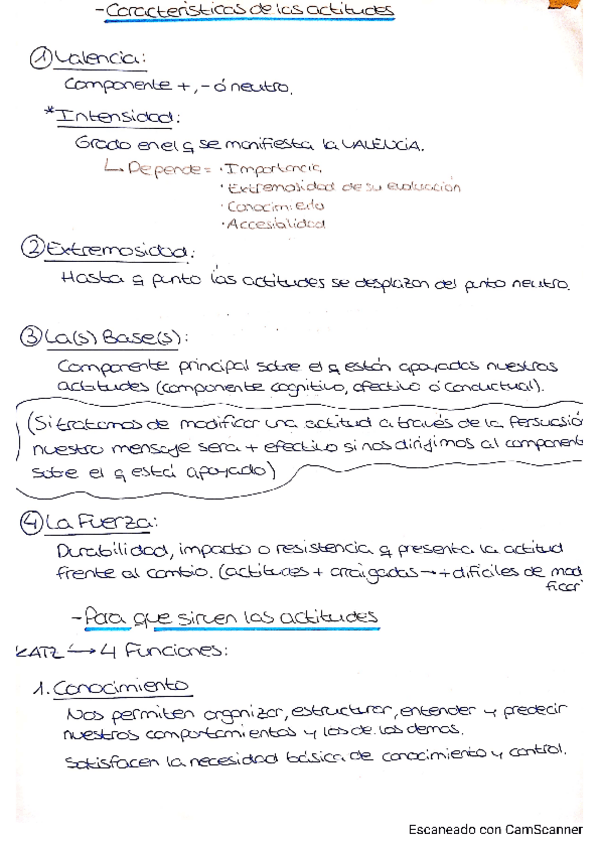 -Caracteristicas de las actitudes
① Valencia:
Componente +, - ó neutro.
*Intensidad:
Grado en el q se manifiesta la VALENCIA.
↳ Depende = · Importancia
· Extremosidad de su evaluación
· Conocimiento
· Accesibilidad
② Extremosidad:
Hasta q punto las actitudes se desplazan del punto neutro.
③ La(s) Base(s):
Componente principal sobre el q están apoyadas nuestras
actitudes (componente cognitivo, afectivo ó conductual).
(Si tratamos de modificar una actitud a través de la Persuasió
nuestro mensaje sera + efectivo si nos dirijimos al component
sobre el q está apoyado)
④ La Fuerza:
Durabilidad, impacto o resistencia q presenta la actitud
frente al cambio. (actitudes + arraigadas → + dificiles de mod
ficar
-Para que sirven las actitudes
KATZ ↪ 4 Funciones:
1. Conocimiento
Nos permiten organizar, estructurar, entender y predecir
nuestros comportamientos y los de los demas.
Satisfacen la necesidad básica de conocimiento y control.
Escaneado con CamScanner